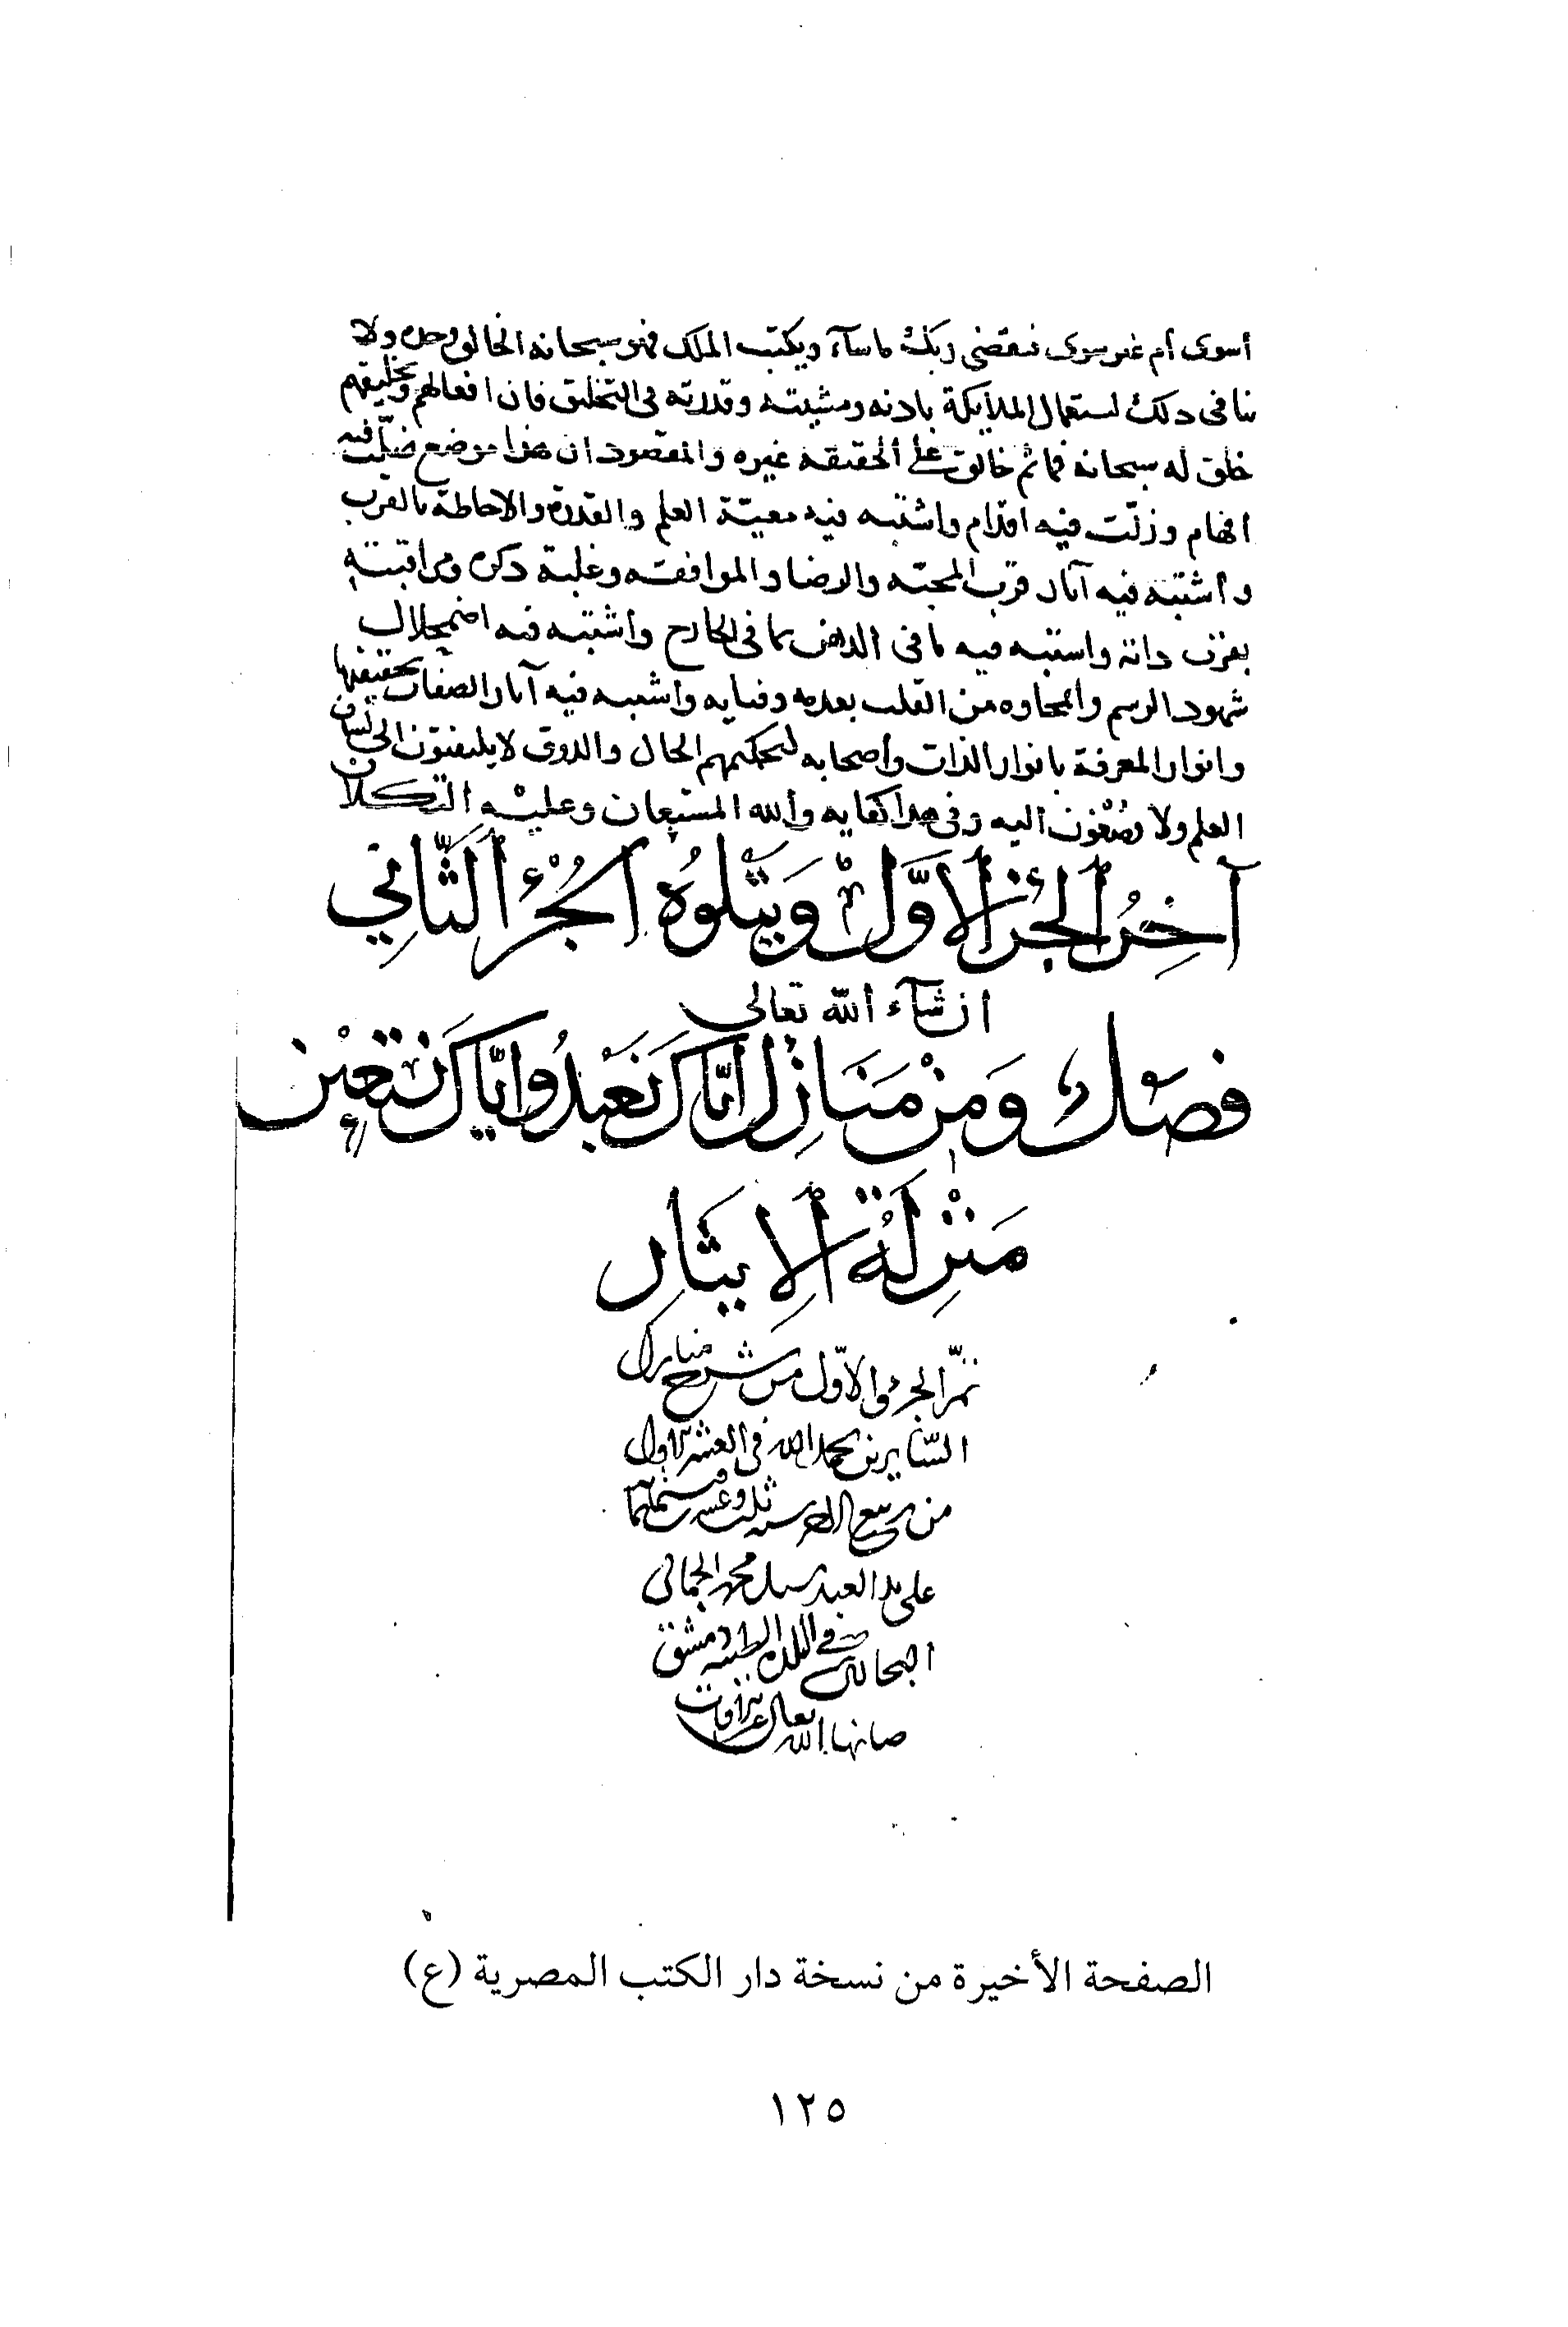 أسوى أم غير سوى فيقضي ربك ما شآء ويكتب الملك فهو سبحانه الخالق وحده ولا
ينافى ذلك استعمال الملائكة باذنه ومشيئته وقدرته فى التخليق فان افعالهم وتخليقهم
خلق له سبحانه فما ثم خالق على الحقيقه غيره والمقصود ان هذا موضع ضلّت فيه
افهام وزلّت فيه اقدام واشتبه فيه معيّة العلم والقدرة والاحاطة بالقرب
وأشتبه فيه آثار قرب المحبّه والرضا والموافقه وغلبة ذكره ومراقبته
بقرب ذاته واشتبه فيه ما فى الذهن بما فى الخارج وأشتبه فيه اضمحلال
شهود الرسم وانمحاوه من القلب بعدمه وفنايه واشتبه فيه آثار الصفات بحقيقتها
وانوار المعرفة بانوار الذات وأصحابه لتحكيمهم الحال والذوق لا يلتفتون الى لسان
العلم ولا يصْغون اليه وفى هذا كفايه وألله المستعان وعليْه التكلان
آخِرُ الجُزْء الاوَّل وَيَتْلُوهُ الجُزْءُ الثَّاني
ان شآء ألله تعالى
فصْل وَمِنْ مَنَازِل ايّاكَ نَعْبُدُ وايّاك نستعِيْن
مَنْزِلَةُ الإيثَار
تمّ الجزء الاوّل من شرح منازل
السّايرين بحمد الله فى العشر الاول
من ربيع الاخر سنه ثلث وعشرين وثمانمائة
على يد العبد محمد الجمالى
فى البلده الطيبه دمشق
صانها الله تعالى عن الافات
الصفحة الأخيرة من نسخة دار الكتب المصرية (ع)
١٢٥